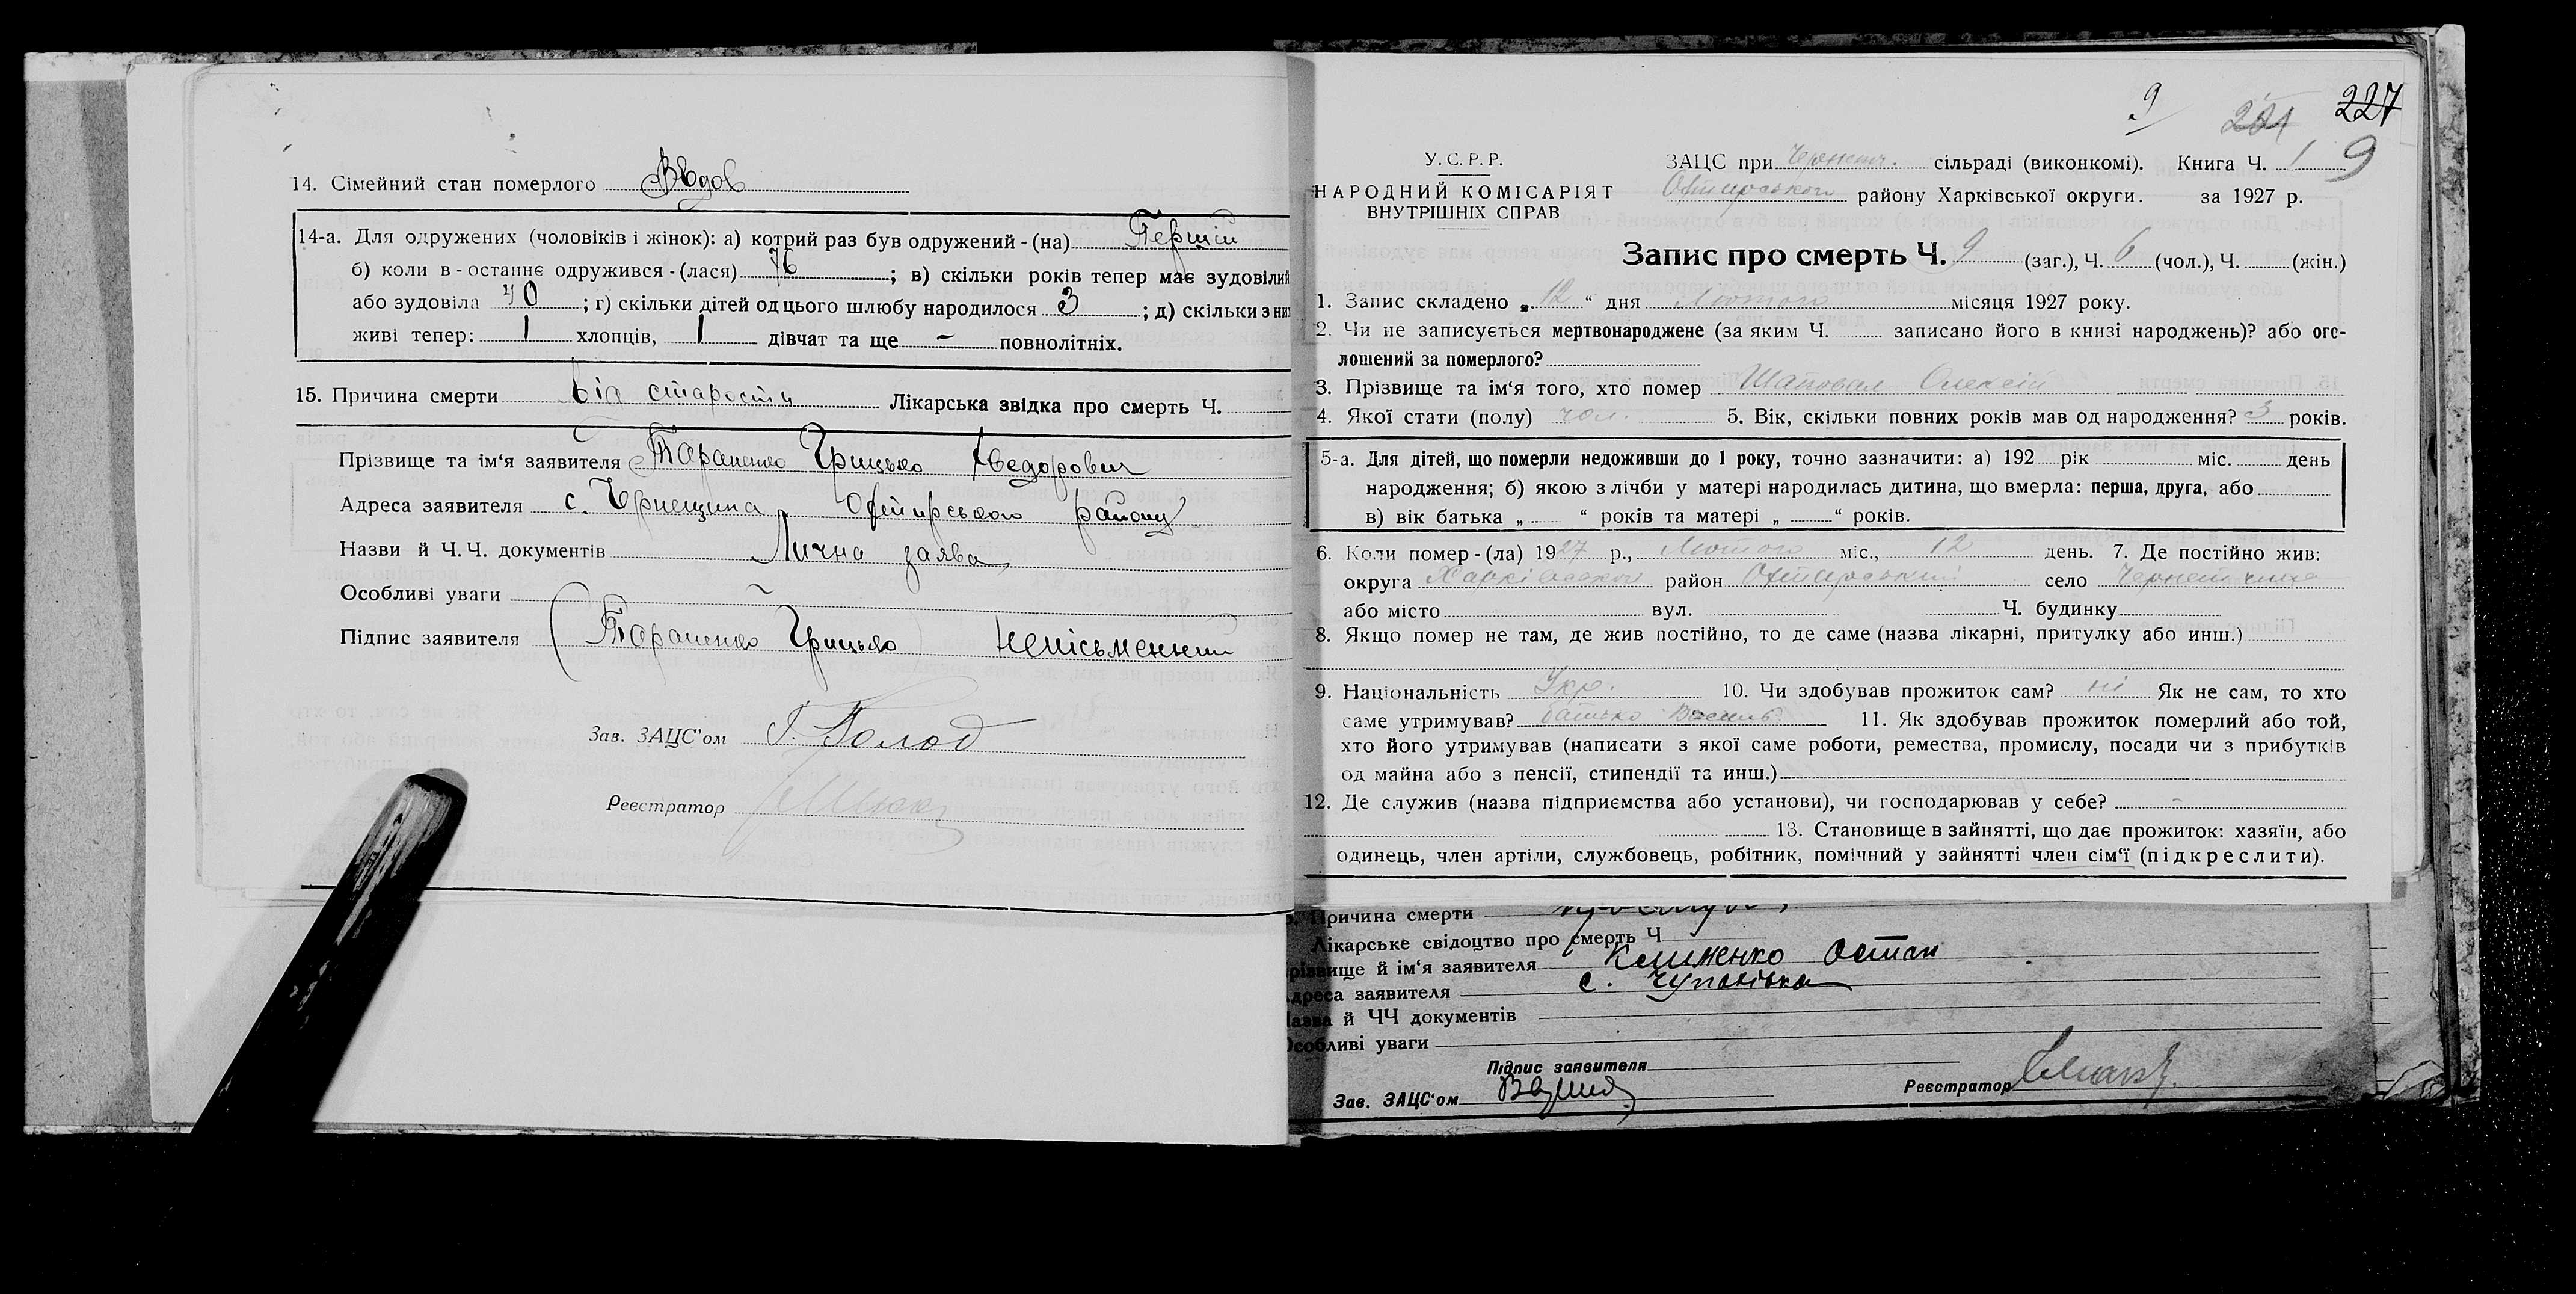 14. Сімейний стан померлого Вдов
14-а. Для одружених (чоловіків і жінок): а) котрий раз був одружений - (на) Перший
б) коли в - останнє одружився - (лася) 76 ; в) скільки років тепер має зудовілий
або зудовіла 40 ; г) скільки дітей од цього шлюбу народилося 3 ; д) скільки з них
живі тепер: 1 хлопців, 1 дівчат та ще - повнолітніх.
15. Причина смерти від старости Лікарська звідка про смерть Ч.
Прізвище та ім'я заявителя Тараненко Грицько Хведорович
Адреса заявителя с. Чернещина Охтирського району
Назви й Ч.Ч. документів Лична заява
Особливі уваги
Підпис заявителя (Тараненко Грицько) непісьменний
Зав. ЗАЦС'ом
Реєстратор
9 227
У.С.Р.Р.
НАРОДНИЙ КОМІСАРІЯТ
ВНУТРІШНІХ СПРАВ
ЗАЦС при сільраді (виконкомі). Книга Ч. 1 9
району Харківської округи. за 1927 р.
Запис про смерть Ч. 9 (заг.), Ч. 6 (чол.), Ч. (жін.)
1. Запис складено „ 12 “ дня Лютого місяця 1927 року.
2. Чи не записується мертвонароджене (за яким Ч. записано його в книзі народжень)? або ого-
лошений за померлого?
3. Прізвище та ім'я того, хто помер Шаповал Олексій
4. Якої стати (полу) чол. 5. Вік, скільки повних років мав од народження? 3 років.
5-а. Для дітей, що померли недоживши до 1 року, точно зазначити: а) 192 рік міс. день
народження; б) якою з лічби у матері народилась дитина, що вмерла: перша, друга, або
в) вік батька „ “ років та матері „ “ років.
6. Коли помер - (ла) 1927 р., Лютого міс., 12 день. 7. Де постійно жив:
округа Харківської район Охтирський село
або місто вул. Ч. будинку
8. Якщо помер не там, де жив постійно, то де саме (назва лікарні, притулку або инш.)
9. Національність Укр. 10. Чи здобував прожиток сам? ні Як не сам, то хто
саме утримував? батько Василь 11. Як здобував прожиток померлий або той,
хто його утримував (написати з якої саме роботи, ремества, промислу, посади чи з прибутків
од майна або з пенсії, стипендії та инш.)
12. Де служив (назва підприємства або установи), чи господарював у себе? -
13. Становище в зайнятті, що дає прожиток: хазяїн, або
одинець, член артіли, службовець, робітник, помічний у зайнятті член сім'ї (підкреслити).
Причина смерти
Лікарське свідоцтво про смерть Ч
різвище й ім'я заявителя Клименко Остап
дреса заявителя с. Чупахівка
Назва й ЧЧ документів
Особливі уваги
Підпис заявителя
Зав. ЗАЦС'ом Реєстратор